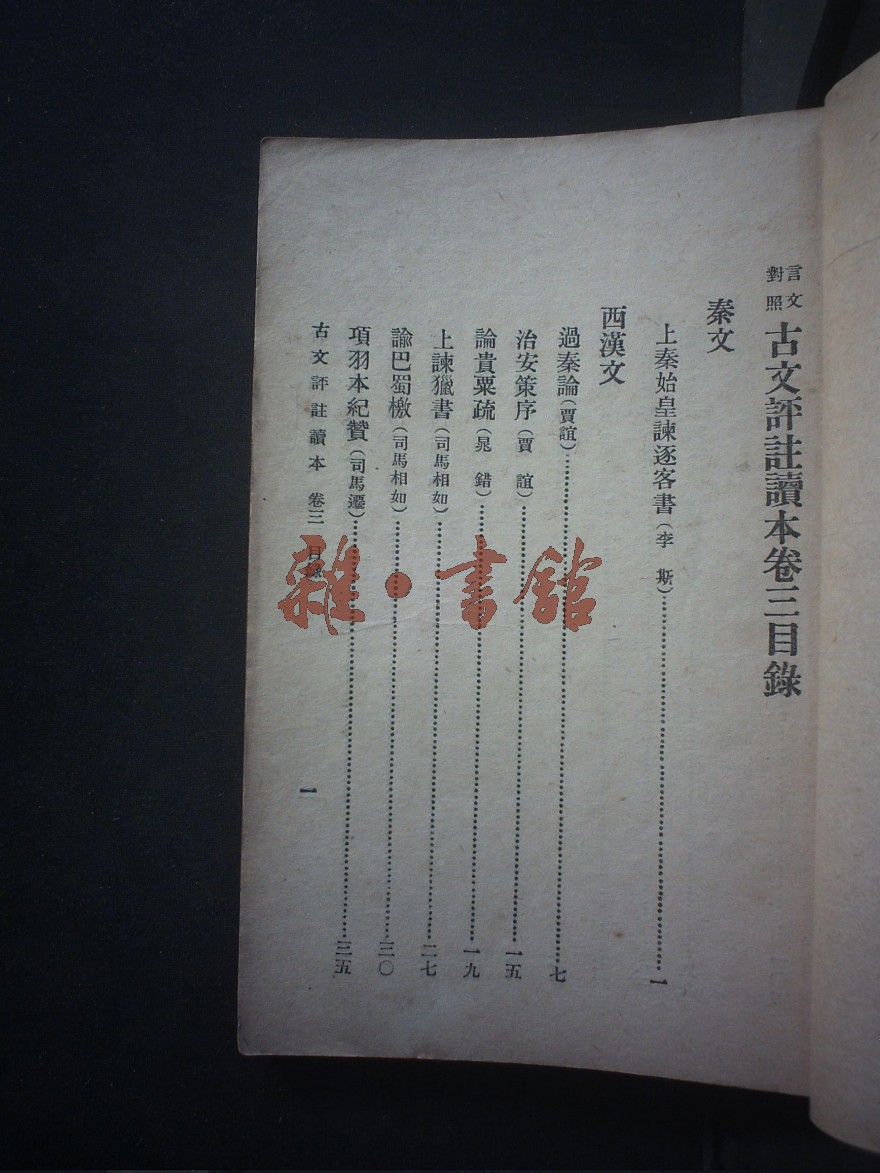 言文
對照
古文評註讀本卷三目錄
秦文
上秦始皇諫逐客書（李　斯）…………一
西漢文
過秦論（賈誼）…………七
治安策序（賈　誼）…………一五
論貴粟疏（晁　錯）…………一九
上諫獵書（司馬相如）…………二七
諭巴蜀檄（司馬相如）…………三〇
項羽本紀贊（司馬遷）…………三五
古文評註讀本　卷三　目錄
一
雜·書館